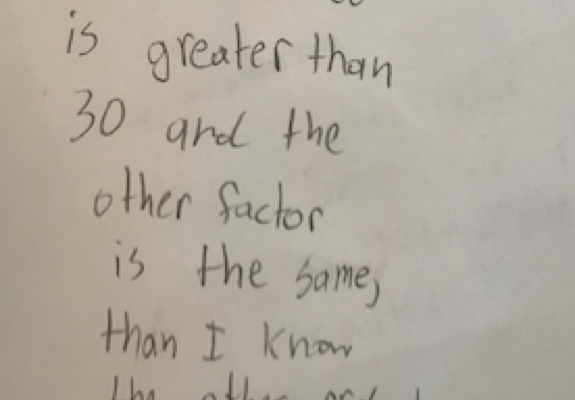 is greater than
30 and the
other factor
is the same,
than I know
the other